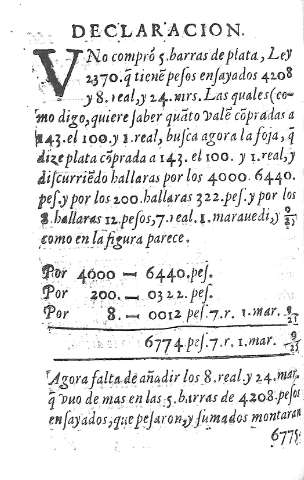 DECLARACION.
VNo compró 5.barras de plata, Ley
2370. q̃ tienẽ pesos ensayados 4208
y 8. real, y 24. mrs. Las quales (co-
mo digo, quiere saber quãto valẽ cõpradas a
143. el 100. y 1. real, busca agora la foja, q̃
dize plata cõprada a 143. el 100. y 1. real, y
discurriẽdo hallaras por los 4000. 6440.
pes. y por los 200. hallaras 322. pes. y por los
8. hallaras 12. pesos, 7. real. 1. marauedi, y 9/25
como en la figura parece.
Por 4000 — 6440. pes.
Por 200. — 0322. pes.
Por 8. — 0012 pes. 7. r. 1. mar. 9/25
6774. pes. 7. r. 1. mar. 9/25
Agora falta de añadir los 8. real, y 24. mar.
q̃ vuo de mas en las 5. barras de 4208. pesos
ensayados, que pesaron, y sumados montaran
6775.